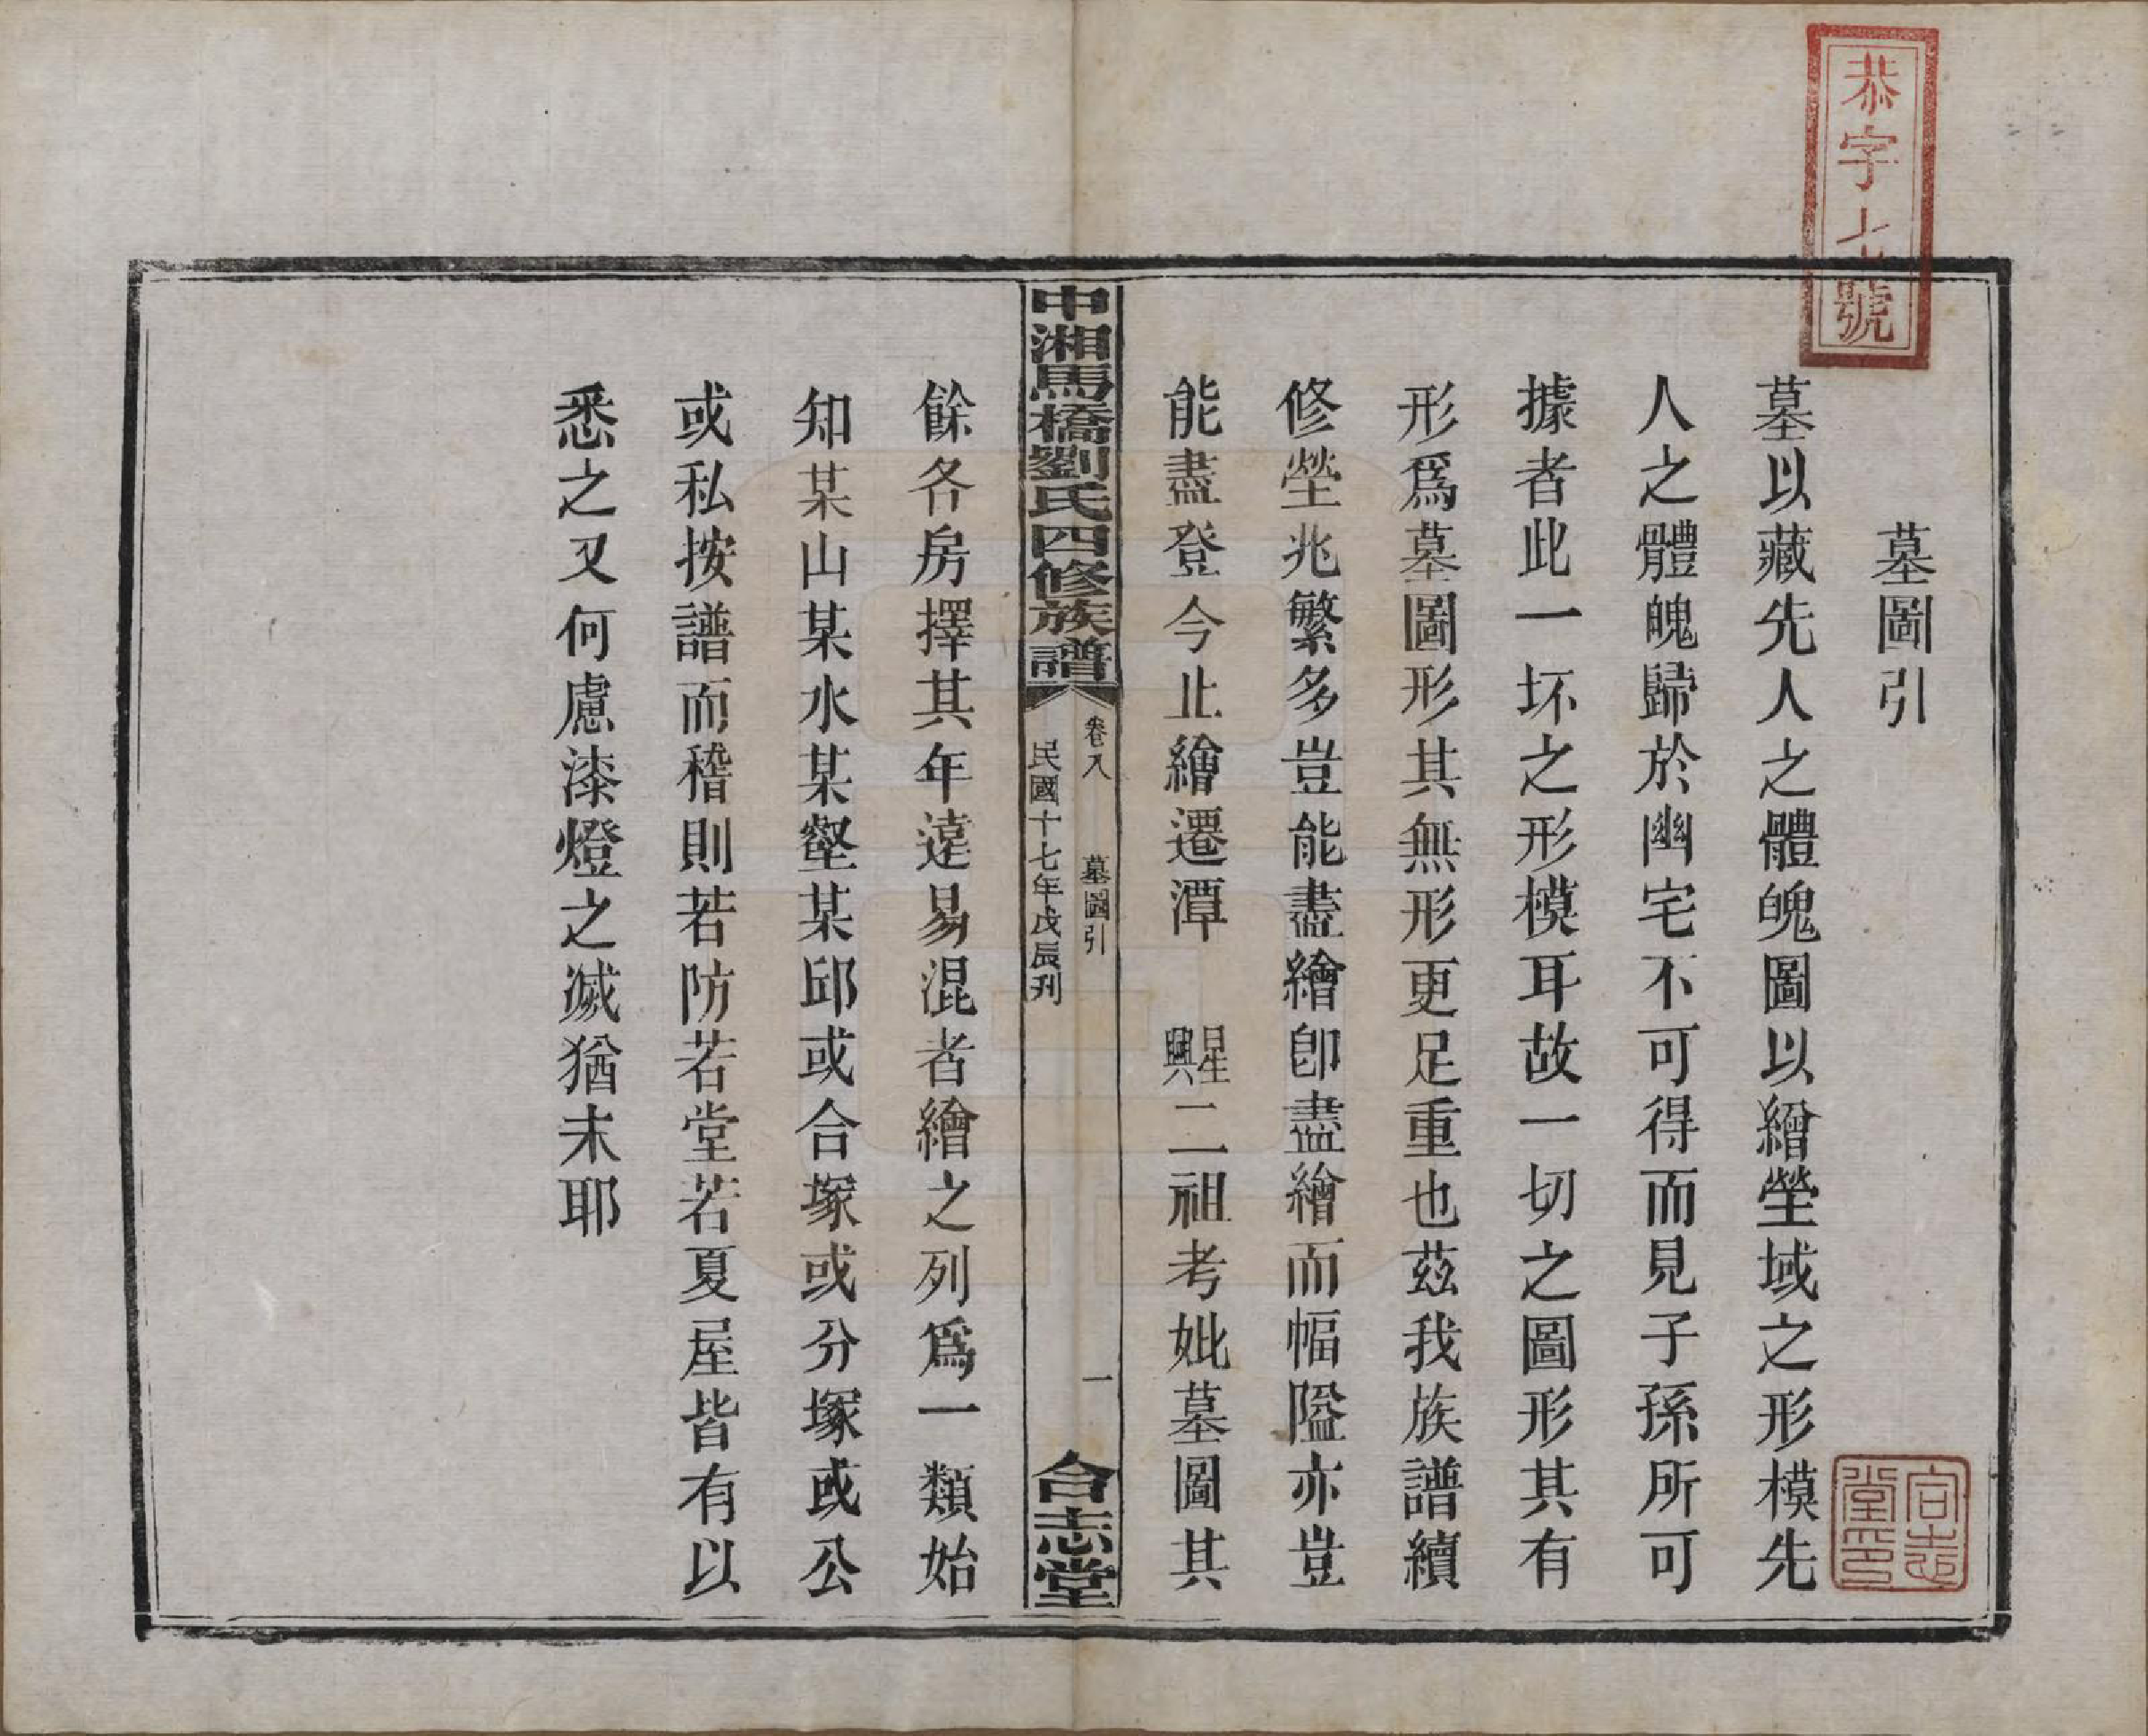 恭字七號
墓圖引
墓以藏先人之體魄圖以繪塋域之形模先
人之體魄歸於幽宅不可得而見子孫所可
據者此一坏之形模耳故一切之圖形其有
形爲墓圖形其無形更足重也茲我族譜續
修塋兆繁多豈能盡繪卽盡繪而幅隘亦豈
能盡登今止繪遷潭星興二祖考妣墓圖其
中湘馬橋劉氏四修族譜
卷八 墓圖引 一
民國十七年戊辰刊
合志堂
餘各房擇其年遠易混者繪之列爲一類始
知某山某水某壑某邱或合塚或分塚或公
或私按譜而稽則若防若堂若夏屋皆有以
悉之又何慮漆燈之滅猶未耶
合志
堂印